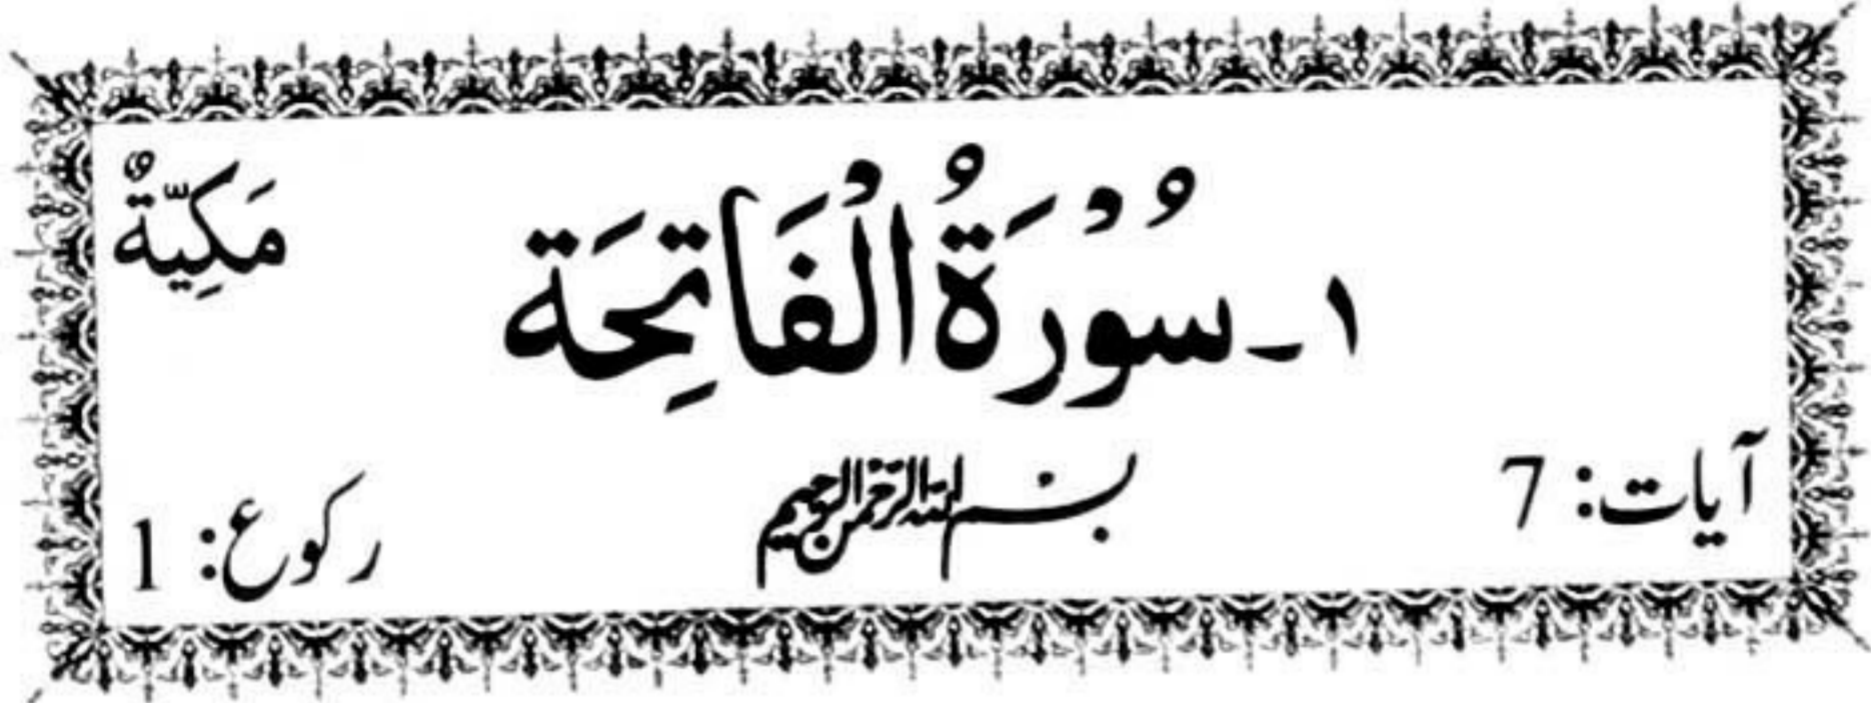 ۱ـ سُوْرَةُ الْفَاتِحَة مَكِّيَّةٌ
آیات: 7 بسم الله الرحمن الرحيم رکوع: 1